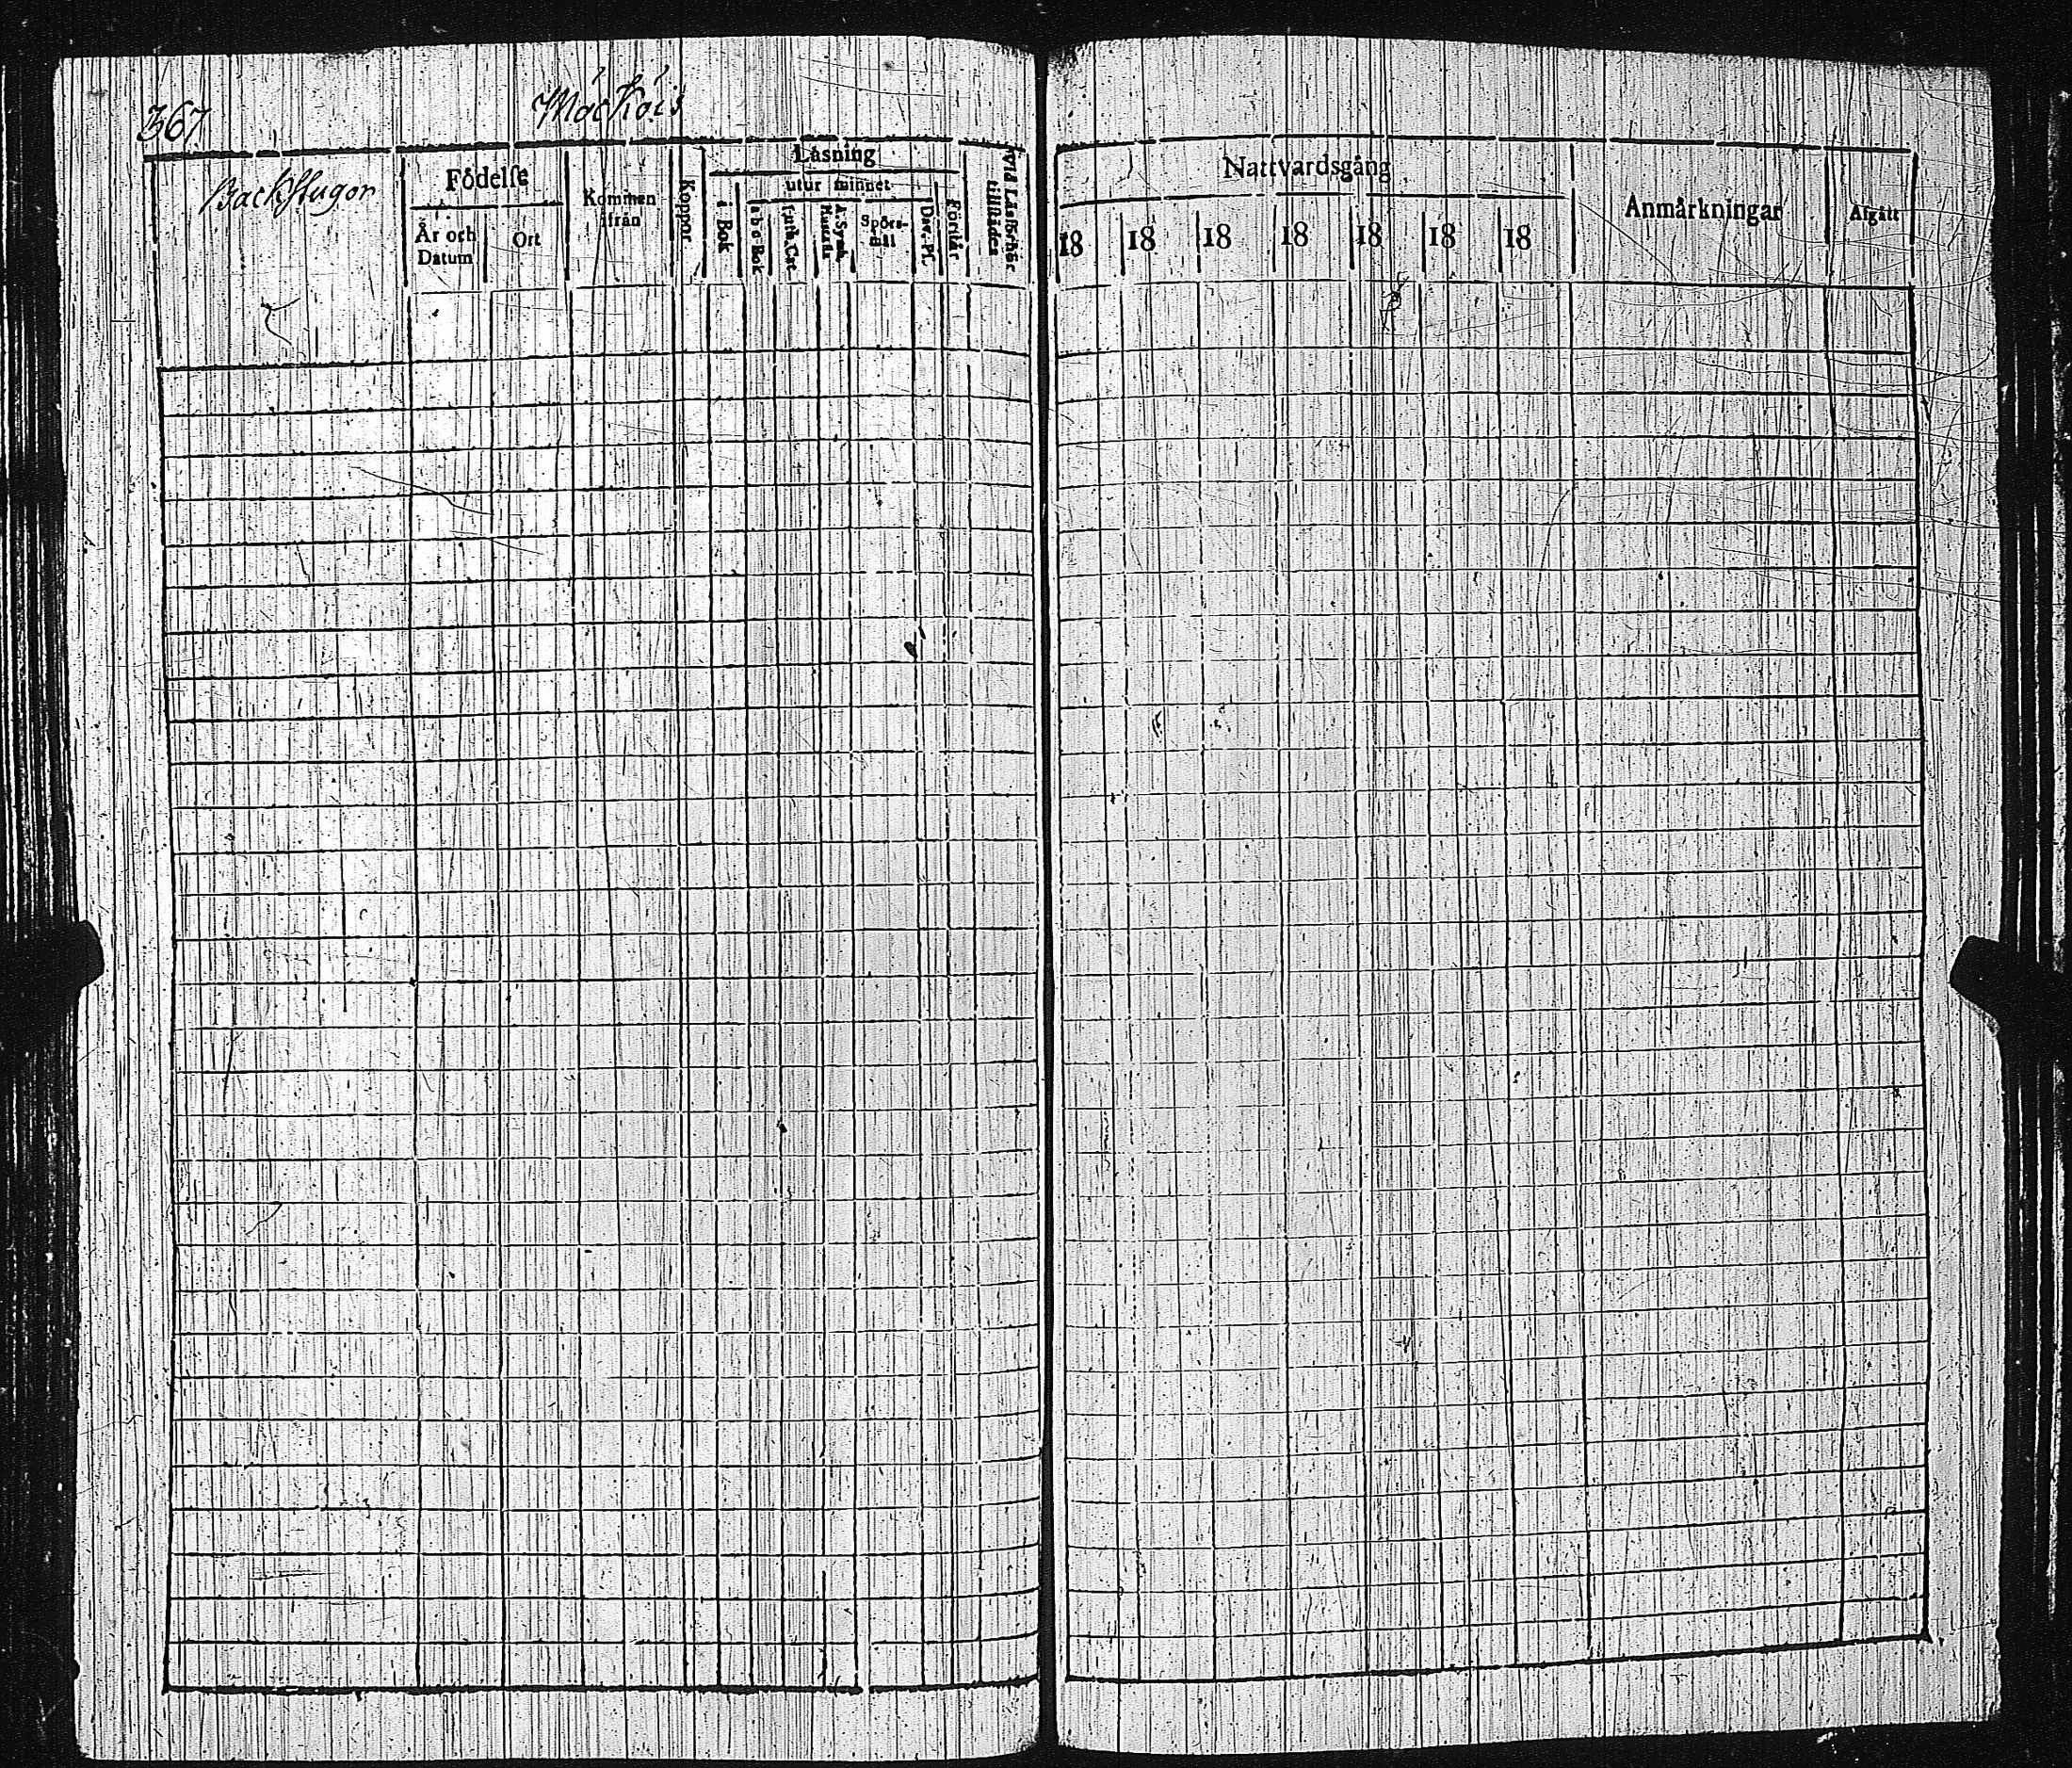 367
Möckois
Backstugor
Födelse
År och
Datum
Ort
Kommen
ifrån
Koppor
Läsning
i Bok
utur minnet
a b c Bok
Luth. Cat.
Spörs-
mål
Dav. Ps.
Förstår
Vid Läsförhör
tillstädes
Nattvardsgång
18 18 18 18 18 18 18
Anmärkningar
Afgått